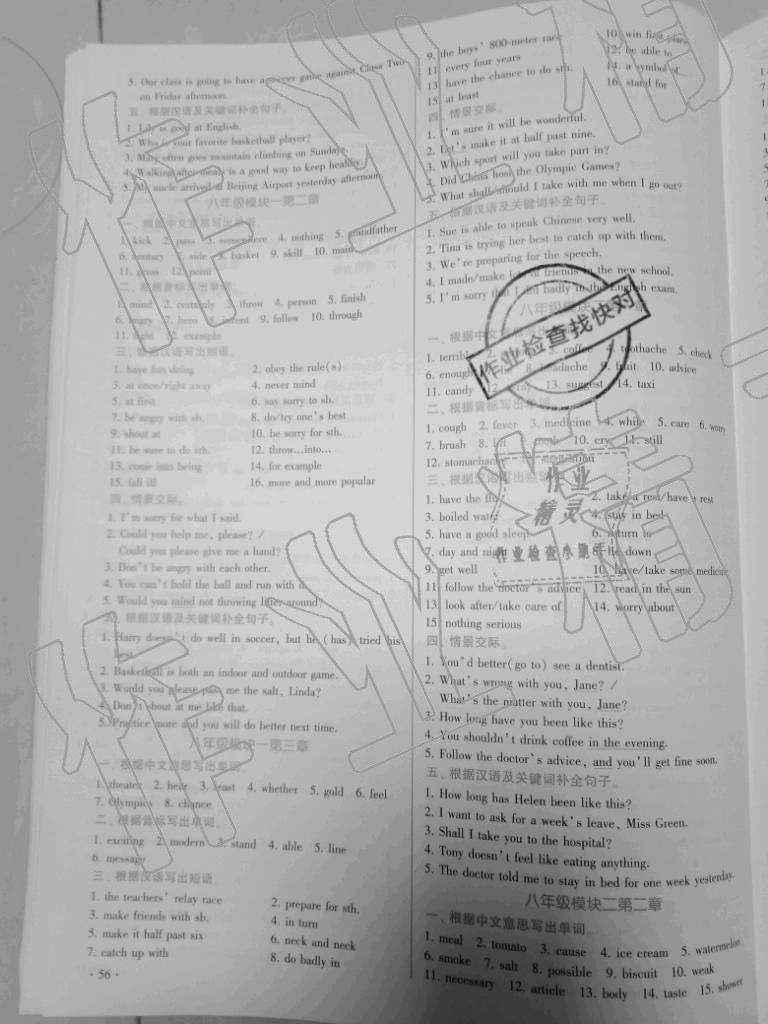 5. Our class is going to have a soccer game against Class Two
on Friday afternoon.
五、根据汉语及关键词补全句子。
1. Lily is good at English.
2. Who is your favorite basketball player?
3. Mary often goes mountain climbing on Sundays.
4. Walking after meals is a good way to keep healthy.
5. My uncle arrived at Beijing Airport yesterday afternoon.
八年级模块一第二章
一、根据中文意思写出单词。
1. kick 2. pass 3. somewhere 4. nothing 5. grandfather
6. century 7. side 8. basket 9. skill 10. main
11. grass 12. point
二、根据音标写出单词。
1. mind 2. certainly 3. throw 4. person 5. finish
6. angry 7. hero 8. invent 9. follow 10. through
11. fight 12. example
三、根据汉语写出短语。
1. have fun doing 2. obey the rule(s)
3. at once/right away 4. never mind
5. at first 6. say sorry to sb.
7. be angry with sb. 8. do/try one's best
9. shout at 10. be sorry for sth.
11. be sure to do sth. 12. throw…into…
13. come into being 14. for example
15. fall ill 16. more and more popular
四、情景交际。
1. I'm sorry for what I said.
2. Could you help me, please? /
Could you please give me a hand?
3. Don't be angry with each other.
4. You can't hold the ball and run with it.
5. Would you mind not throwing litter around?
五、根据汉语及关键词补全句子。
1. Harry doesn't do well in soccer, but he (has) tried his
best.
2. Basketball is both an indoor and outdoor game.
3. Would you please pass me the salt, Linda?
4. Don't shout at me like that.
5. Practice more and you will do better next time.
八年级模块一第三章
一、根据中文意思写出单词。
1. theater 2. hear 3. least 4. whether 5. gold 6. feel
7. Olympics 8. chance
二、根据音标写出单词。
1. exciting 2. modern 3. stand 4. able 5. line
6. message
三、根据汉语写出短语。
1. the teachers' relay race 2. prepare for sth.
3. make friends with sb. 4. in turn
5. make it half past six 6. neck and neck
7. catch up with 8. do badly in
· 56 ·
9. the boys' 800-meter race 10. win first place
11. every four years 12. be able to
13. have the chance to do sth. 14. a symbol of…
15. at least 16. stand for
四、情景交际。
1. I'm sure it will be wonderful.
2. Let's make it at half past nine.
3. Which sport will you take part in?
4. Did China host the Olympic Games?
5. What shall/should I take with me when I go out?
五、根据汉语及关键词补全句子。
1. Sue is able to speak Chinese very well.
2. Tina is trying her best to catch up with them.
3. We're preparing for the speech.
4. I made/make lots of friends in the new school.
5. I'm sorry that I did badly in the English exam.
八年级模块二第一章
一、根据中文意思写出单词。
1. terrible 3. coffee 4. toothache 5. check
6. enough 8. headache 9. fruit 10. advice
11. candy 12. 13. suggest 14. taxi
二、根据音标写出单词。
1. cough 2. fever 3. medicine 4. while 5. care 6. worry
7. brush 8. 10. cry 11. still
12. stomachache suggestion
三、根据汉语写出短语。
1. have the flu 2. take a rest/have a rest
3. boiled water 4. stay in bed
5. have a good sleep 6. return to
7. day and night 8. lie down
9. get well 10. have/take some medicine
11. follow the doctor's advice 12. read in the sun
13. look after/take care of 14. worry about
15. nothing serious
四、情景交际。
1. You'd better (go to) see a dentist.
2. What's wrong with you, Jane? /
What's the matter with you, Jane?
3. How long have you been like this?
4. You shouldn't drink coffee in the evening.
5. Follow the doctor's advice, and you'll get fine soon.
五、根据汉语及关键词补全句子。
1. How long has Helen been like this?
2. I want to ask for a week's leave, Miss Green.
3. Shall I take you to the hospital?
4. Tony doesn't feel like eating anything.
5. The doctor told me to stay in bed for one week yesterday.
八年级模块二第二章
一、根据中文意思写出单词。
1. meal 2. tomato 3. cause 4. ice cream 5. watermelon
6. smoke 7. salt 8. possible 9. biscuit 10. weak
11. necessary 12. article 13. body 14. taste 15. shower
作业检查找快对
作业
精灵
作业检查小助手